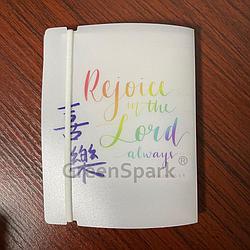 Rejoice
in the
Lord
always
喜樂
GreenSpark®